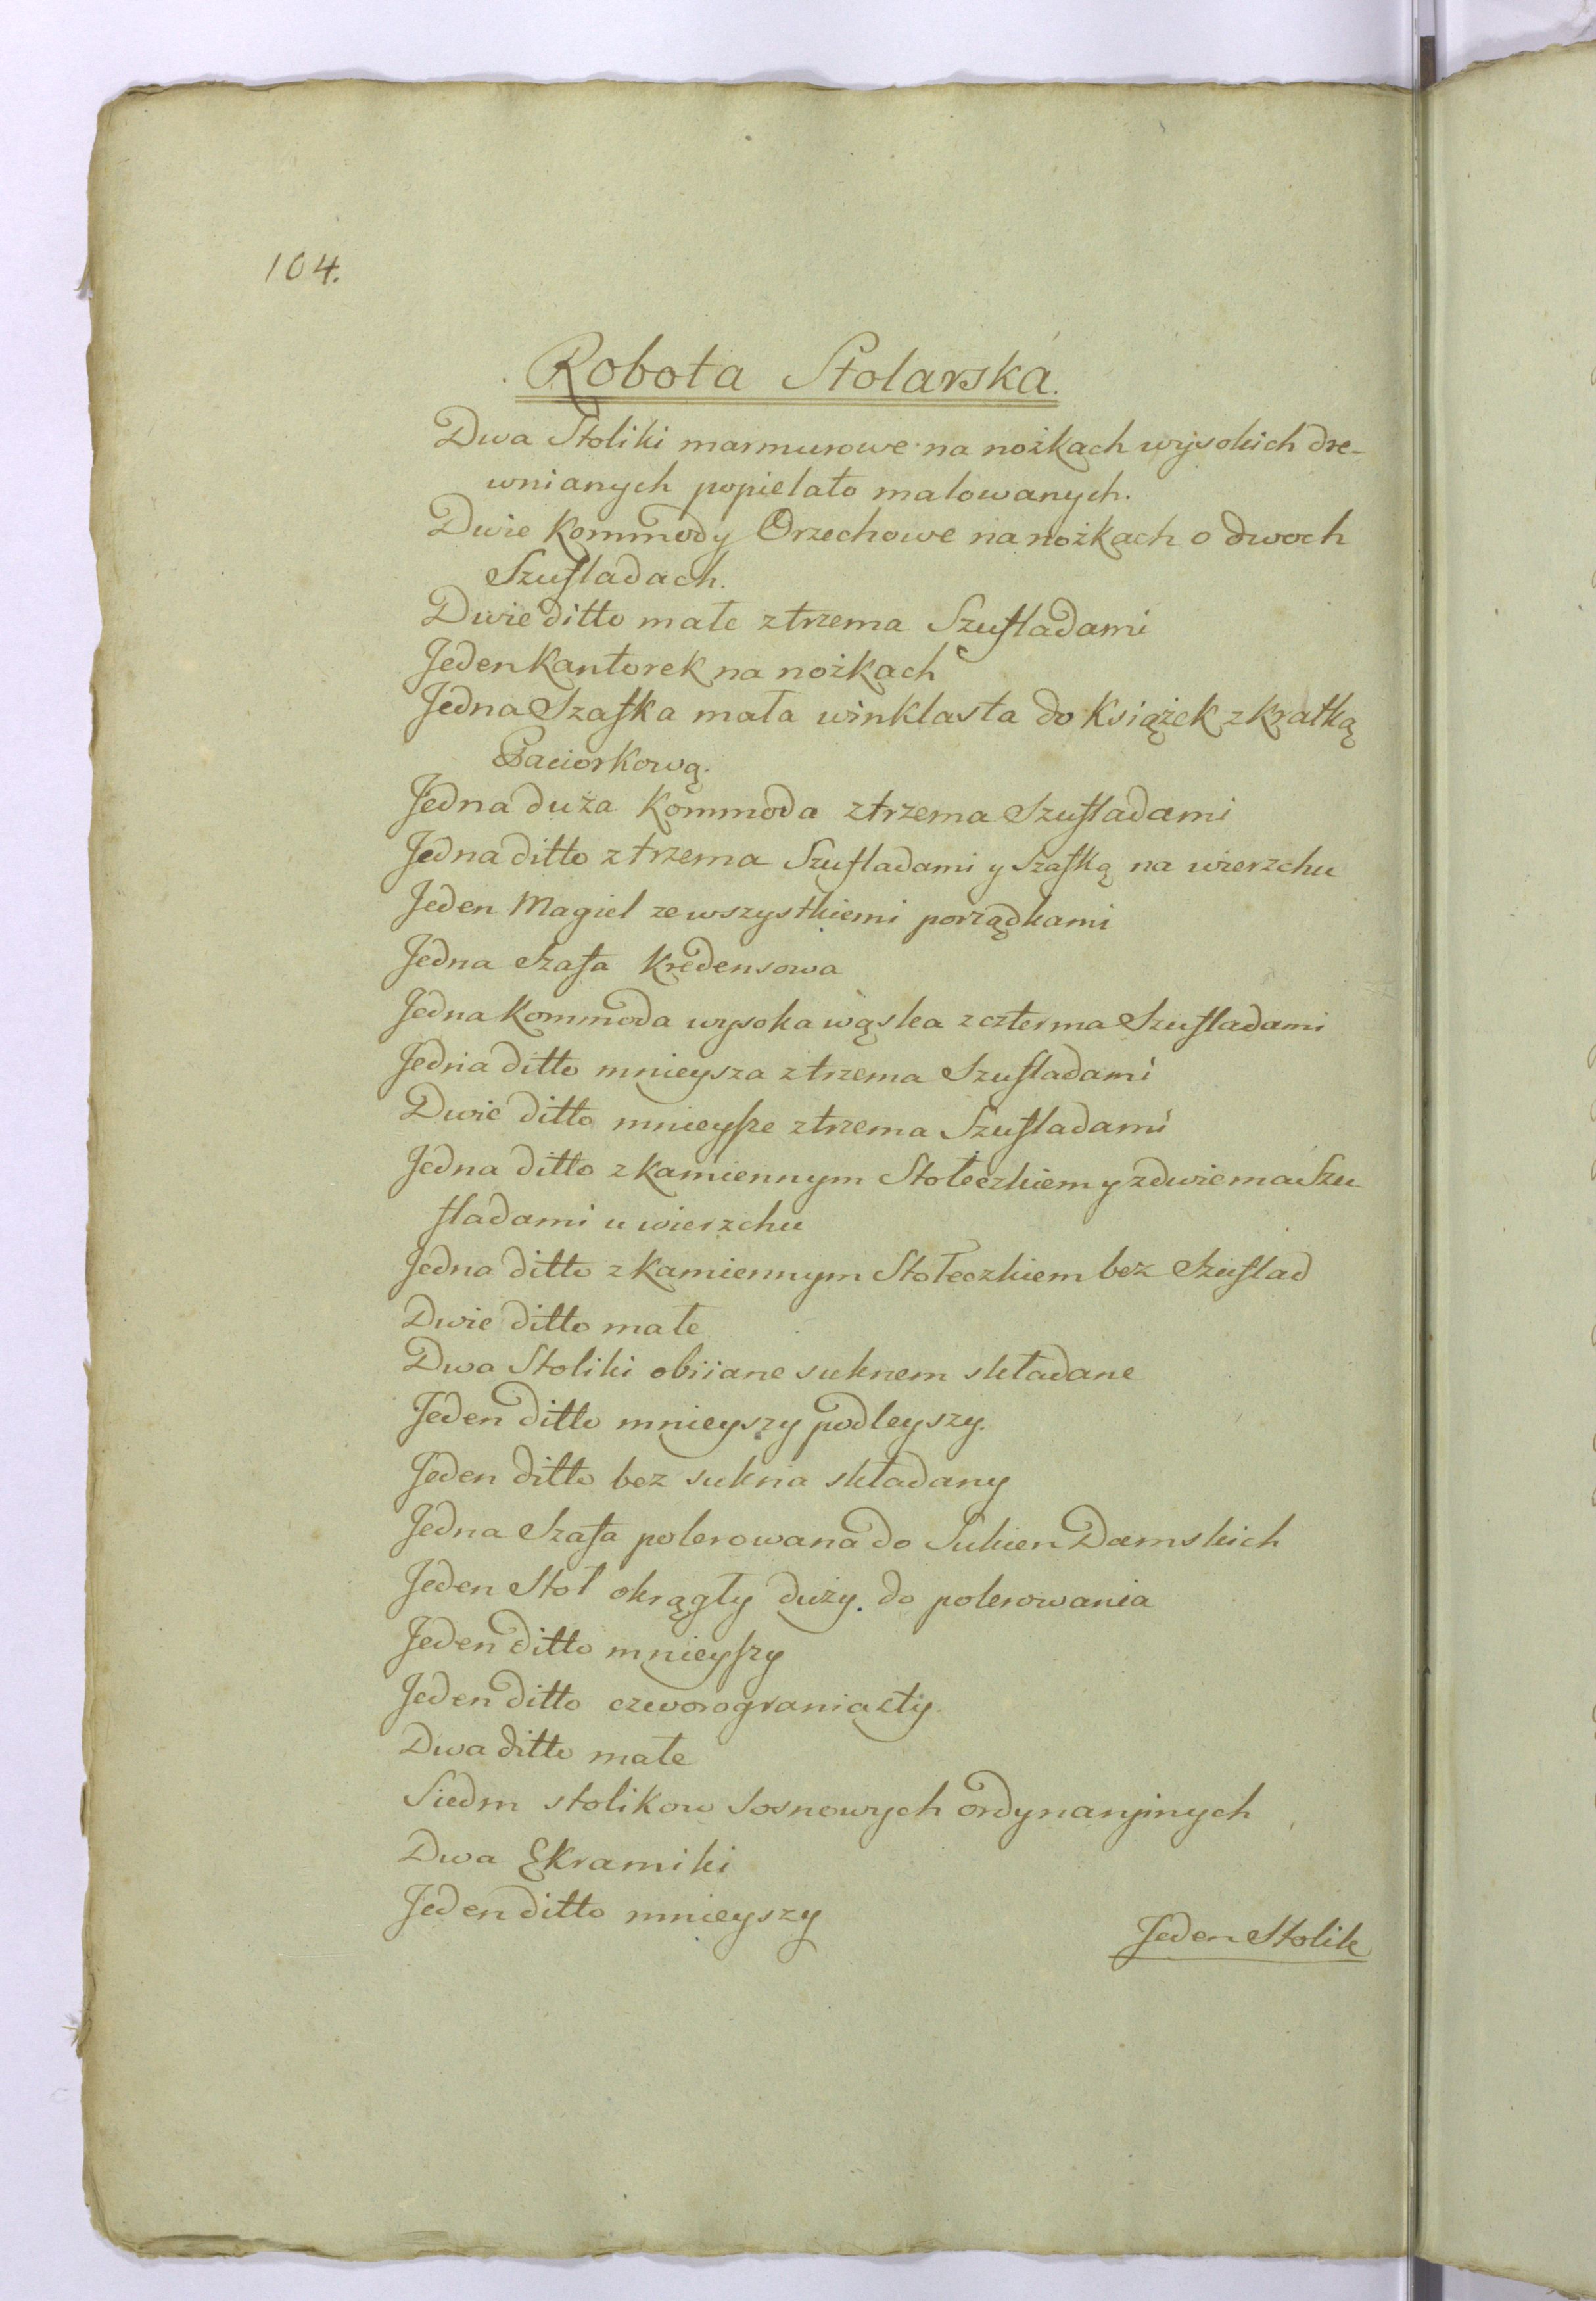 104.
Robota Stolarska.
Dwa Stoliki marmurowe na nożkach wysokich dre-
wnianych popielato malowanych.
Dwie Kommody Orzechowe na nożkach o dwoch
Szufladach.
Dwie ditto małe z trzema Szufladami
Jeden Kantorek na nożkach
Jedna Szafka mała winklasta do Książek z kratką
Paciorkową.
Jedna duża Kommoda z trzema Szufladami
Jedna ditto z trzema Szufladami y Szafką na wierzchu
Jeden Magiel ze wszystkiemi porządkami
Jedna Szafa Kredensowa
Jedna Kommoda wysoka wąska z czterma Szufladami
Jedna ditto mnieysza z trzema Szufladami
Dwie ditto mnieysze z trzema Szufladami
Jedna ditto z Kamiennym Stołeczkiem y z dwiema Szu
fladami u wierzchu
Jedna ditto z Kamiennym Stołeczkiem bez Szuflad
Dwie ditto małe
Dwa Stoliki obiiane suknem składane
Jeden ditto mnieyszy podleyszy.
Jeden ditto bez sukna składany
Jedna Szafa polerowana do Sukien Damskich
Jeden Stoł okrągły duży do polerowania
Jeden ditto mnieyszy
Jeden ditto czworograniasty.
Dwa ditto małe
Siedm stolikow sosnowych ordynaryinych
Dwa Ekramiki
Jeden ditto mnieyszy
Jeden Stolik